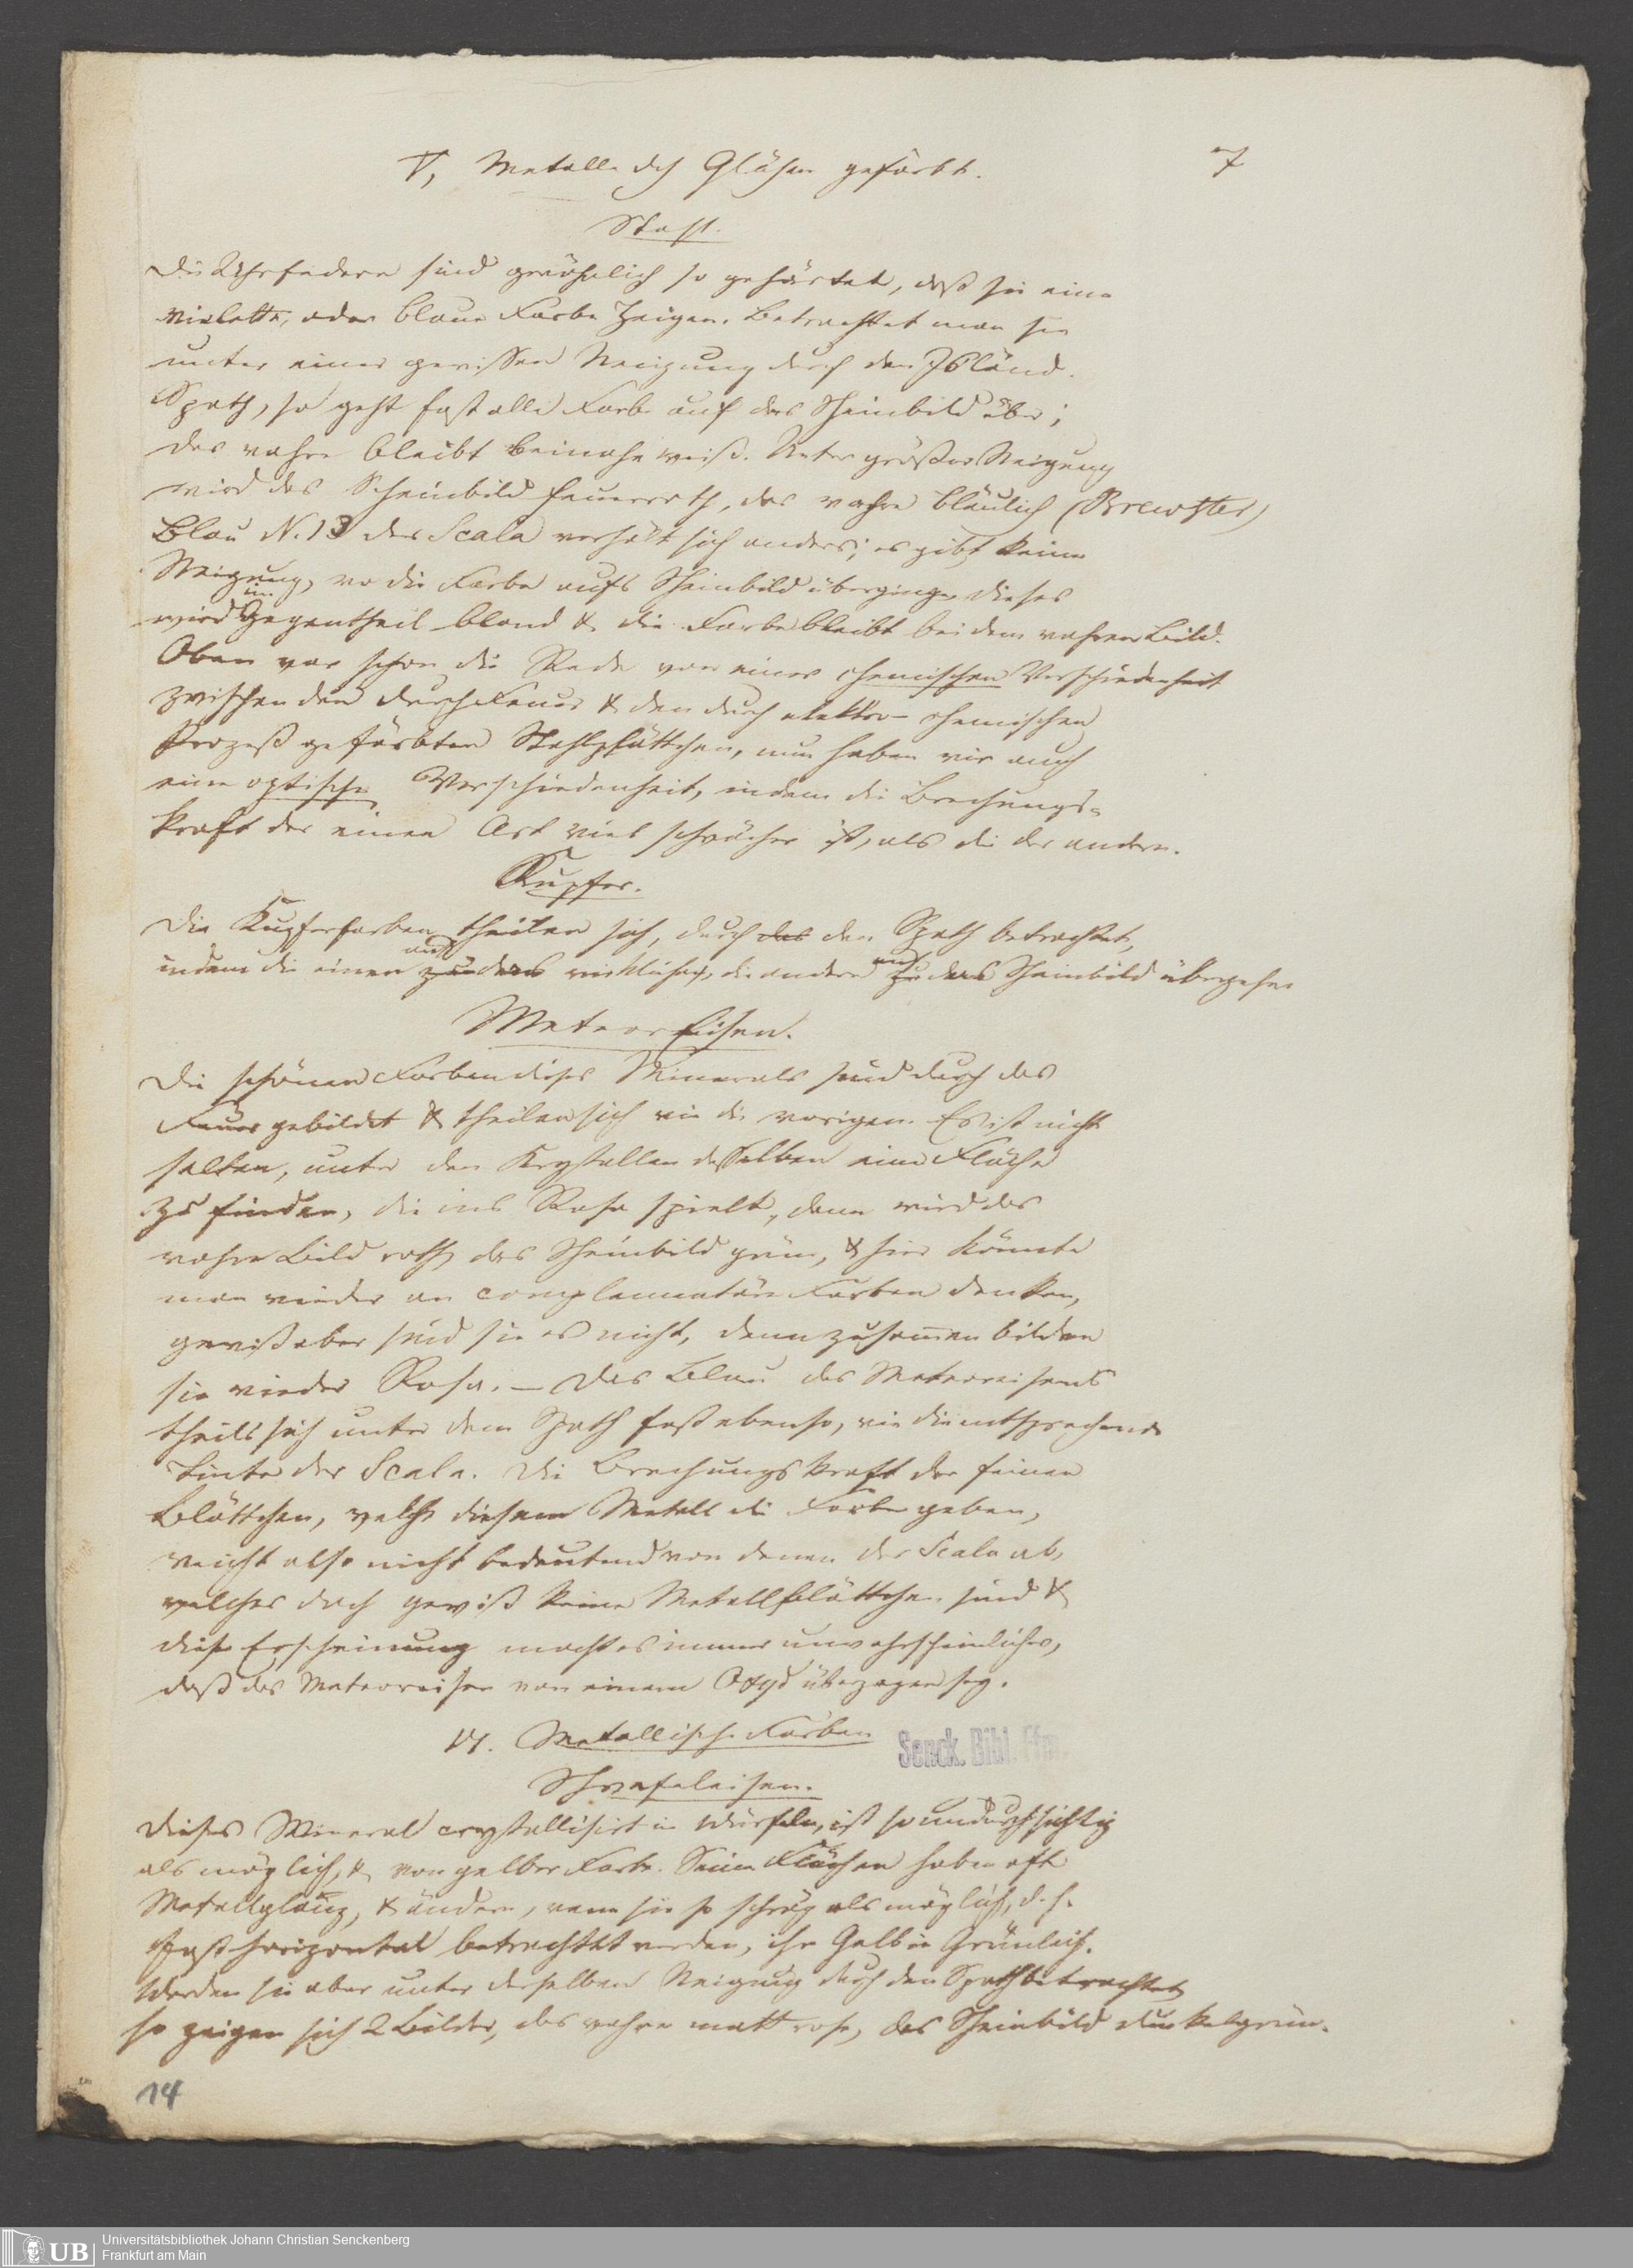 V, Metalle dch Glühen gefärbt.
7
Stahl.
Die Uhrfedern sind gewöhnlich so gehärtet, daß sie eine
violette, oder blaue Farbe zeigen. Betrachtet man sie
unter einer gewissen Neigung durch den Isländ.
Spath, so geht fast alle Farbe auf das Scheinbild über;
das wahre bleibt beinahe weiß. Unter größrer Neigung
wird das Scheinbild feuerroth, das wahre bläulich (Brewster)
Blau N. 13 der Scala verhält sich anders; es gibt keine
Neigung, wo die Farbe aufs Scheinbild überginge, dieses
wird im Gegentheil blond & die Farbe bleibt bei dem wahren Bild.
Oben war schon die Rede von einer chemischen Verschiedenheit
zwischen den durchs Feuer & den durch elektro-chemischen
Prozeß gefärbten Stahlplättchen, nun haben wir auch
eine optische Verschiedenheit, indem die Brechungs-
kraft der einen Art viel schwächer ist, als die der andern.
Kupfer.
Die Kupferfarben theilen sich, durch das den Spath betrachtet,
indem die einen zu auf das wirkliche, die andern zu auf das Scheinbild übergehen
MeteorEisen.
Die schönen Farben dieses Minerals sind durch das
Feuer gebildet & theilen sich wie die vorigen. Es ist nicht
selten, unter den Krystallen desselben eine Fläche
zu finden, die ins Rosa spielt, dann wird das
wahre Bild roth, das Scheinbild grün, & hier könnte
man wieder an complementäre Farben denken,
gewiß aber sind sie es nicht, denn zusammen bilden
sie wieder Rosa. – Das Blau des Meteoreisens
theilt sich unter dem Spath fast ebenso, wie die entsprechende
Tinte der Scala. Die Brechungskraft der feinen
Blättchen, welche diesem Metall die Farbe geben,
weicht also nicht bedeutend von denen der Scala ab,
welches doch gewiß keine Metallblättchen sind &
diese Erscheinung macht es immer unwahrscheinlicher,
daß das Meteoreisen von einem Oxyd überzogen sey.
VI. Metallische Farben
Senck. Bibl. Ffm.
Schwefeleisen.
Dieses Mineral crystallisirt in Würfeln, ist so undurchsichtig
als möglich, & von gelber Farbe. Seine Flächen haben oft
Metallglanz, & ändern, wenn sie so schräg als möglich, d. h.
fast horizontal betrachtet werden, ihr Gelb in Grünlich.
Werden sie aber unter derselben Neigung durch den Spath betrachtet
so zeigen sich 2 Bilder, das wahre matt rosa, das Scheinbild dunkelgrün.
14
UB
Universitätsbibliothek Johann Christian Senckenberg
Frankfurt am Main